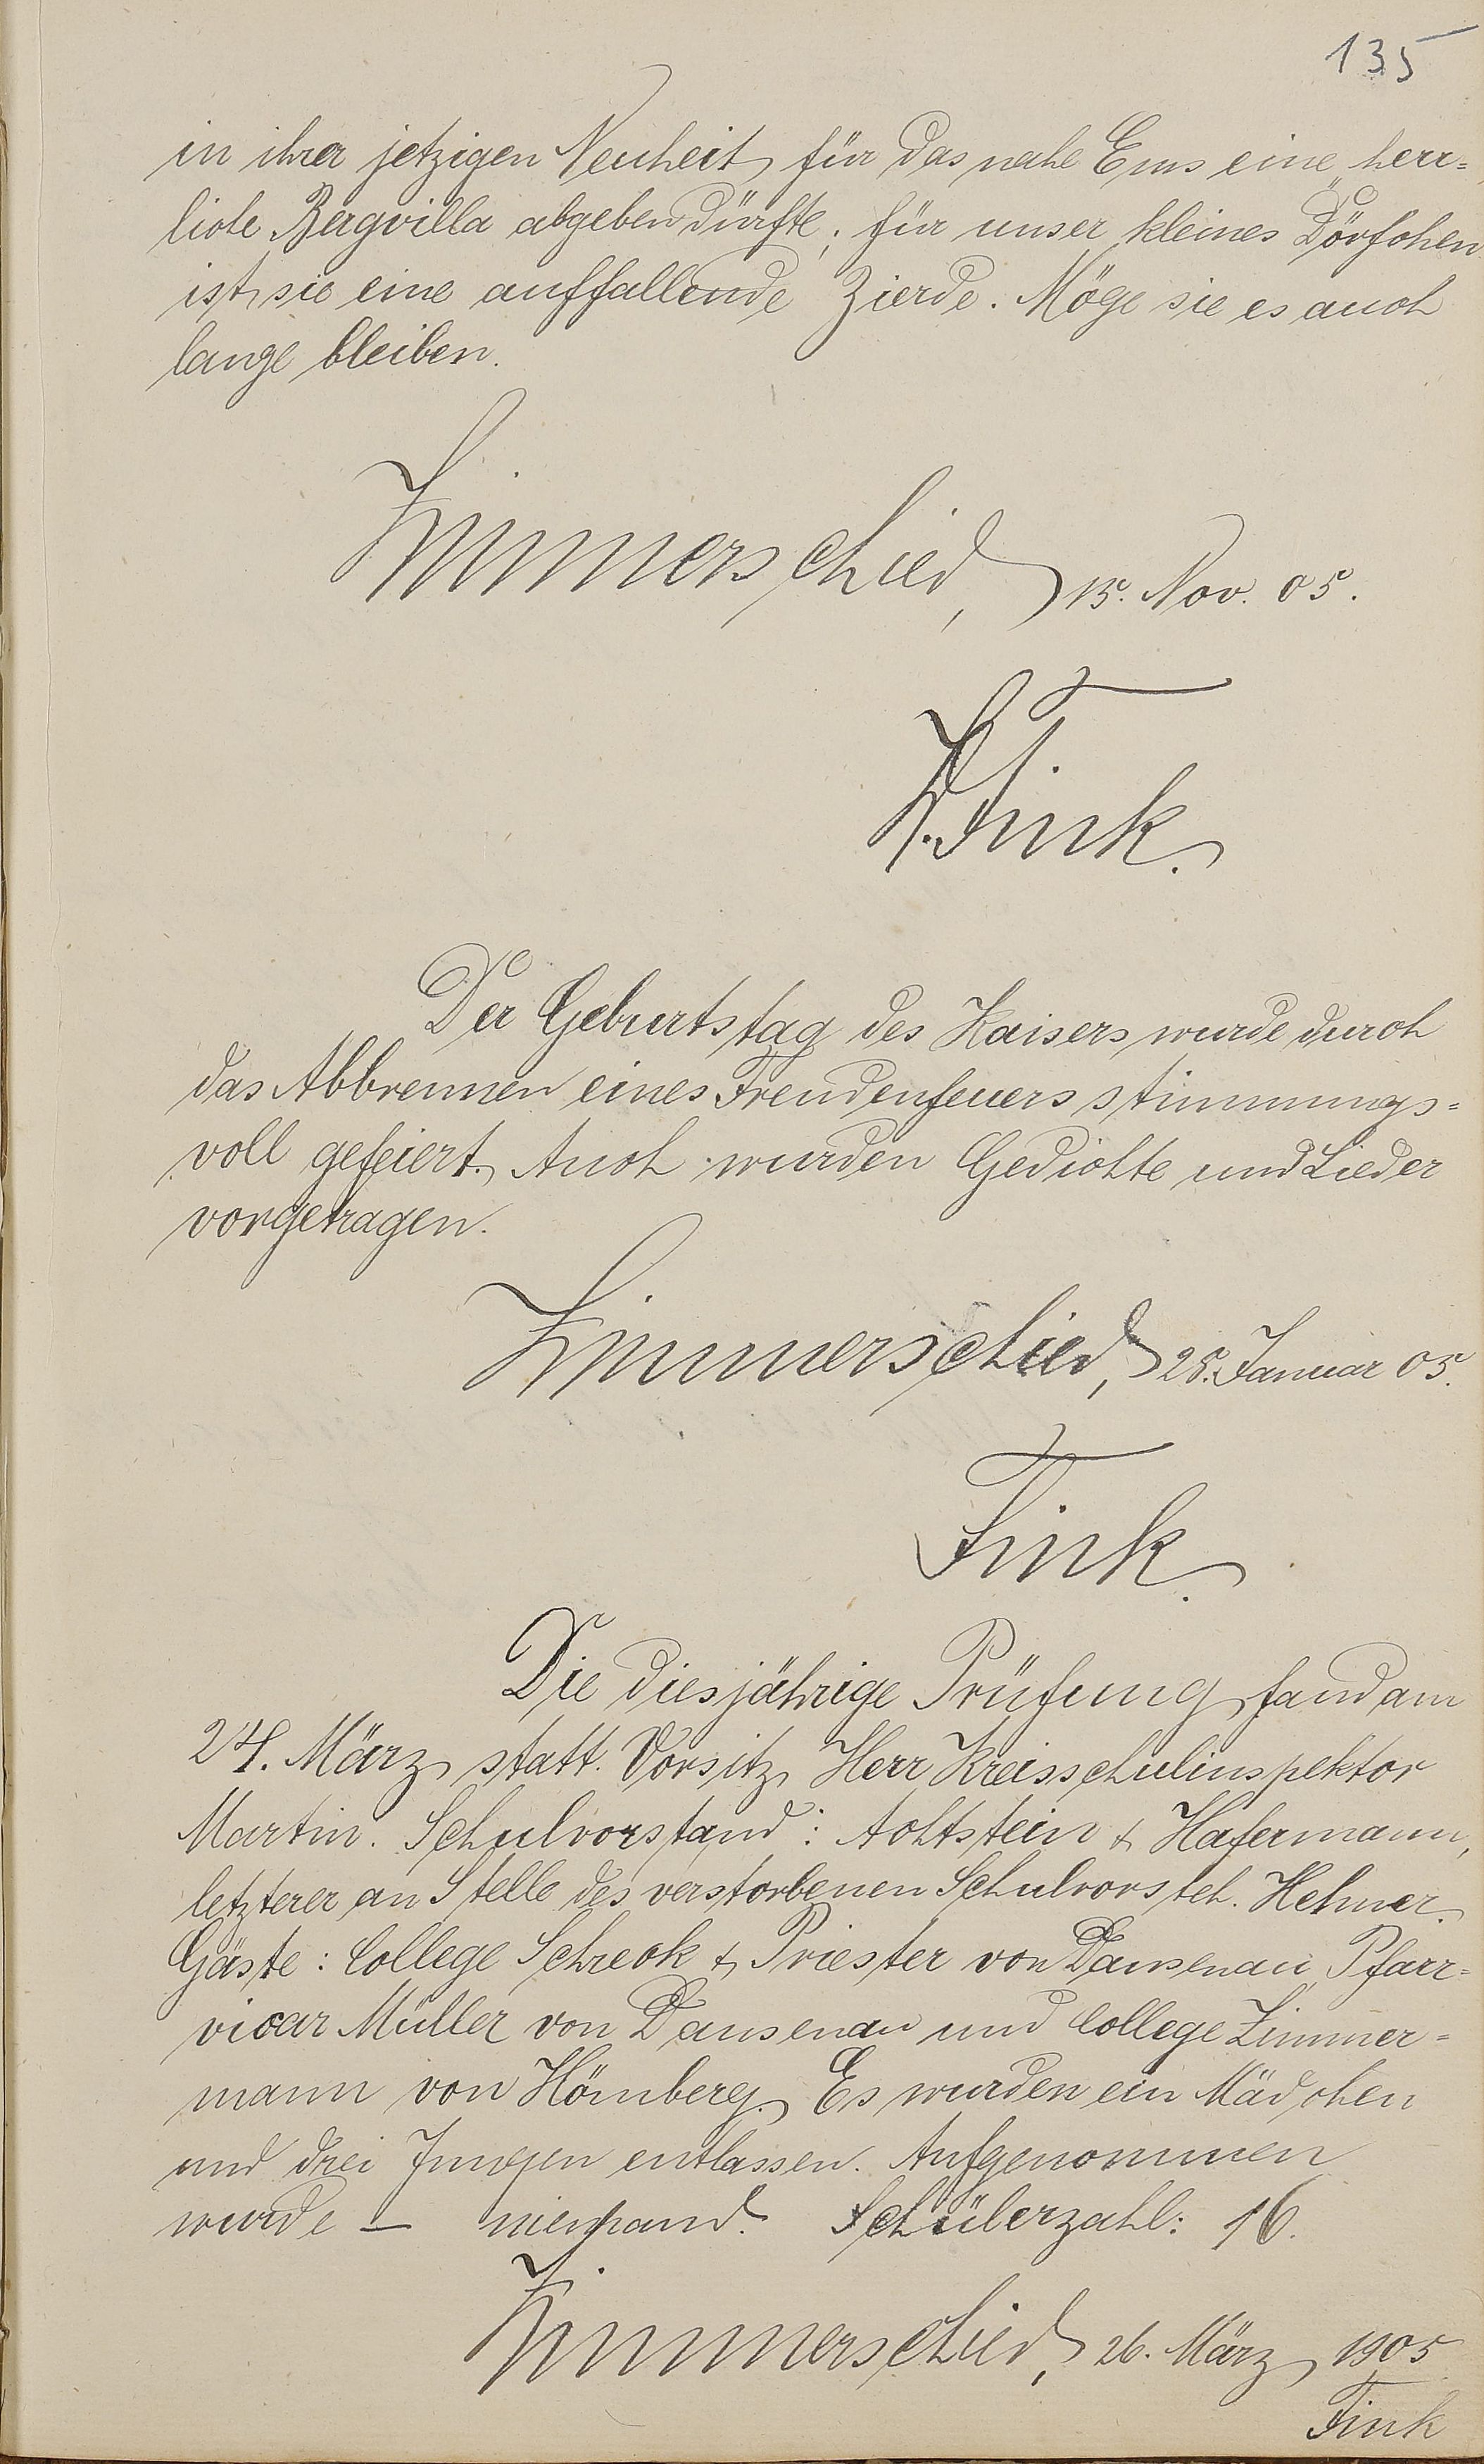 135
in ihrer jetzigen Neuheit für das nahe Ems eine herr=
liche Bergvilla abgeben dürfte; für unser kleines Dörfchen
ist sie eine auffallende Zierde. Möge sie es auch
lange bleiben.
Zimmerschied, 15. Nov. 05.
K. Fink.
Der Geburtstag des Kaisers wurde durch
das Abbrennen eines Freudenfeuers stimmungs=
voll gefeiert. Auch wurden Gedichte und Lieder
vorgetragen.
Zimmerschied, 28. Januar 05.
Fink.
Die diesjährige Prüfung fand am
24. März statt. Vorsitz Herr Kreisschulinspektor
Martin. Schulvorstand: Achtstein & Hafermann,
letzterer an Stelle des verstorbenen Schulvorsteh. Hehner.
Gäste: College Schreck & Priester von Dausenau, Pfarr=
vicar Müller von Dausenau und College Zimmer=
mann von Hömberg. Es wurden ein Mädchen
und drei Jungen entlassen. Aufgenommen
wurde – niemand. Schülerzahl: 16.
Zimmerschied, 26. März 1905
Fink